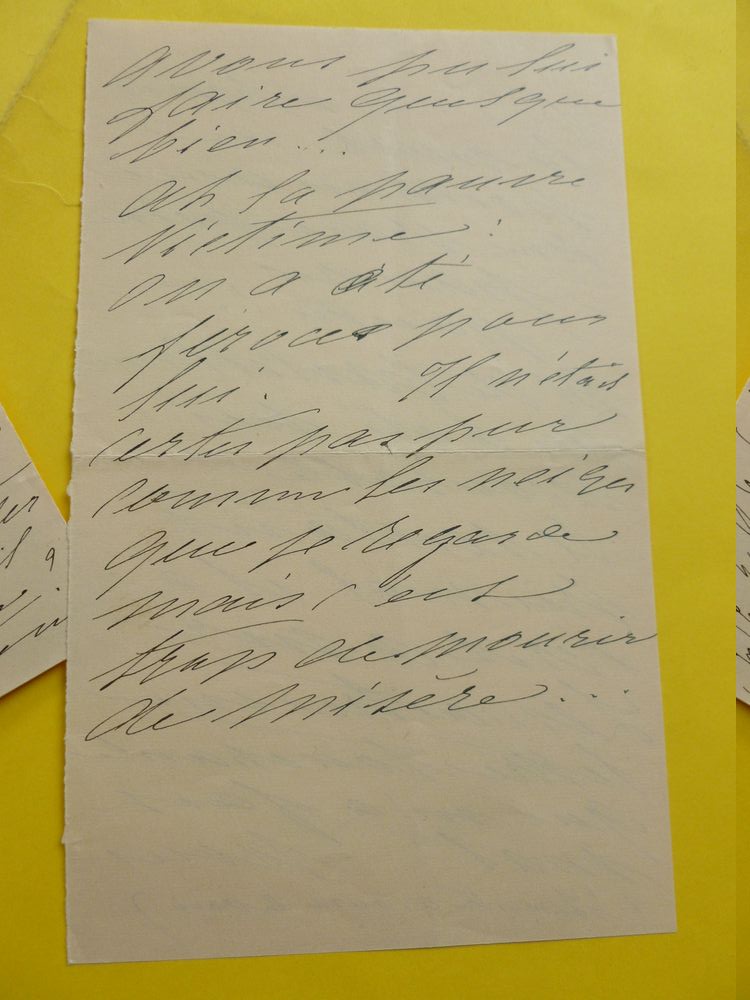 avons pu lui
faire quelque
bien...
ah la pauvre
victime !
on a été
féroces pour
lui. Il n'était
certes pas pur
comme les neiges
que je regarde
mais c'est
trop de mourir
de misère...